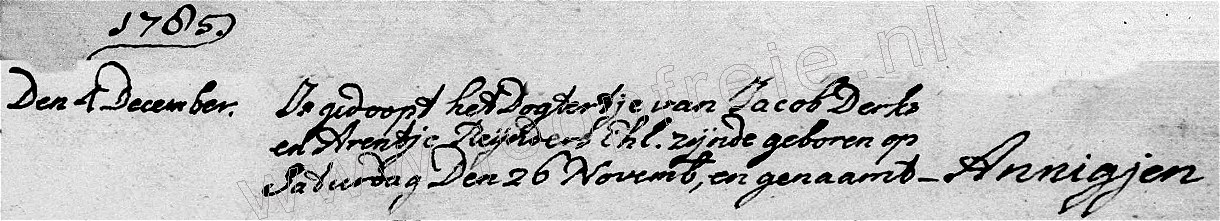 1785.
Den 4 December. Is gedoopt het Dogtertje van Jacob Derks
en Arentje Reijnders Ehl. zijnde geboren op
Saturdag Den 26 Novemb, en genaamt - Annigjen